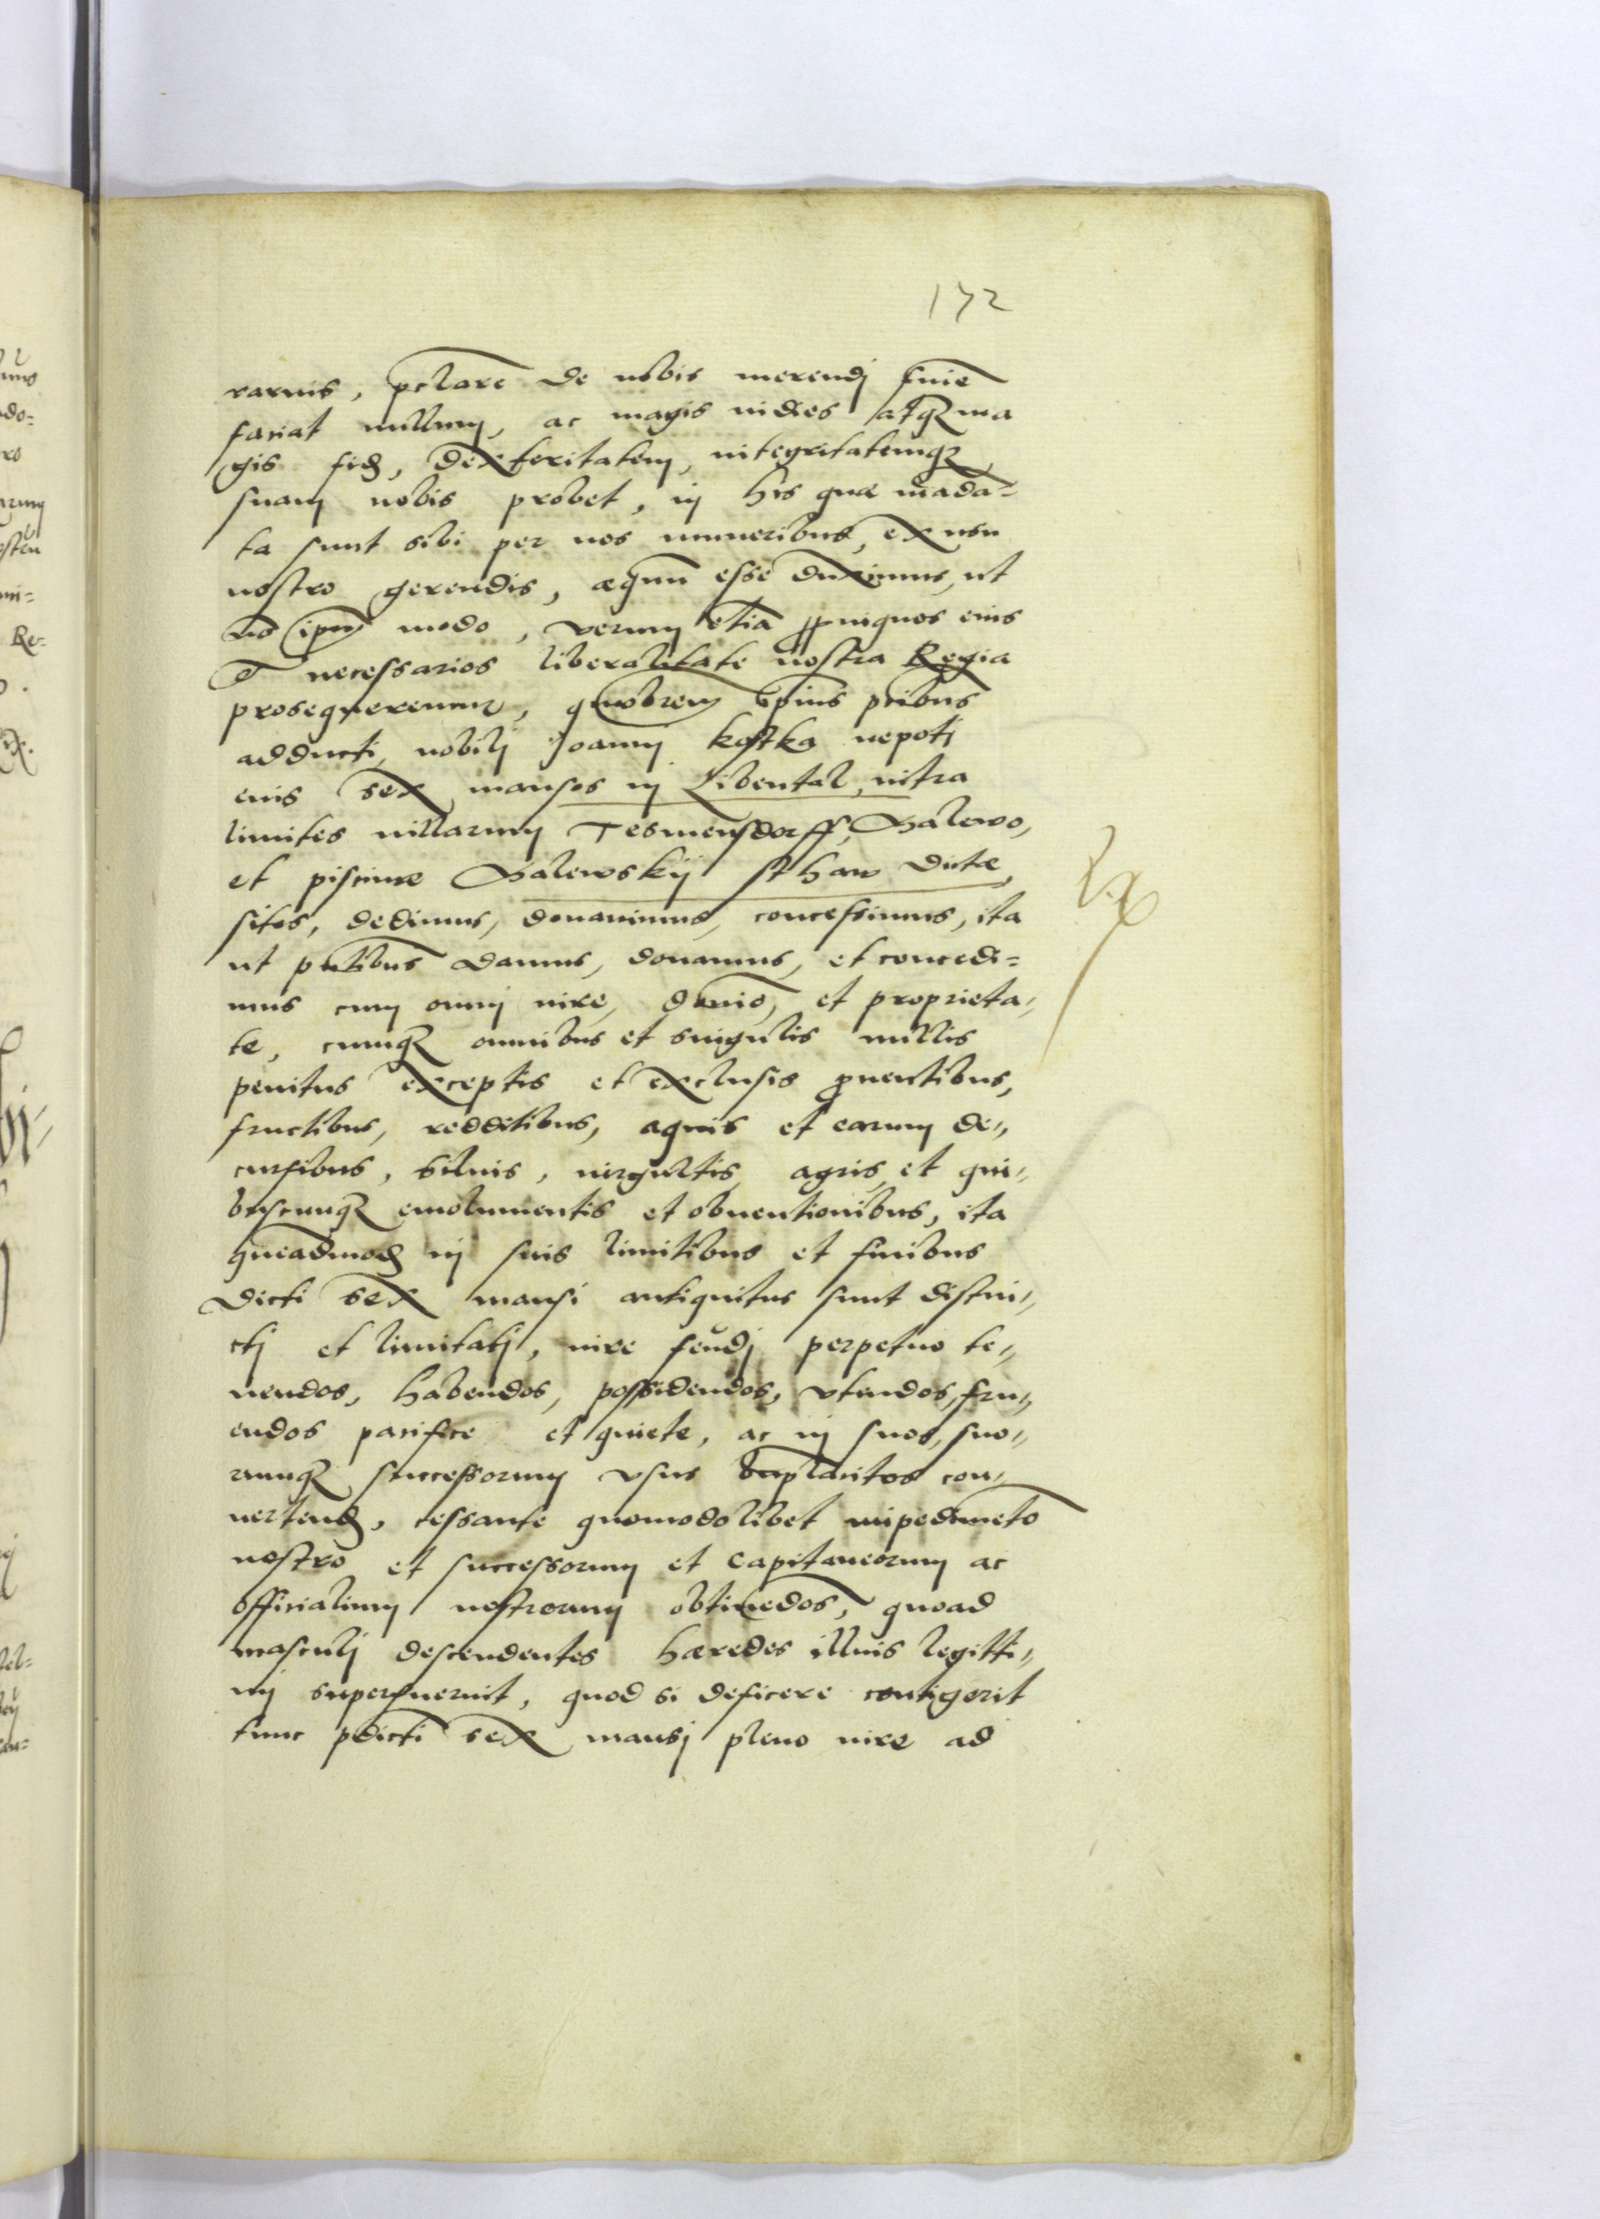 172
rarius, pclare de nobis merendj finē
faciat nullum, ac magis indies atq̃ ma
gis fidē, dexteritatem, integritatemq̃
suam nobis probet, in his quæ māda=
ta sunt sibi per nos muneribus, ex usu
nostro gerendis, æquū esse duximus, ut
nō ipm modo, verum etiā ppinquos eius
et necessarios liberalitate nostra Regia
prosequeremur, quobrem ipius pcibus
adducti, nobilj Joannj Kostka nepotj
eius sex mansos in Libental, intra
limites villarum Tesmensdorff, Balewo,
et piscinæ Balewskij sthaw dictæ,
sitos, dedimus, donavimus, concessimus, ita
ut pntibus damus, donamus, et concedi=
mus cum omnj iure, dnio, et proprieta,,
te, cumq̃ omnibus et singulis nullis
penitus exceptis et exclusis prouentibus,
fructibus, redditibus, aquis et earum de,,
cursibus, siluis, virgultis, agris, et qui,,
buscunq̃ emolumentis et obuentionibus, ita
queadmodū in suis limitibus et finibus
dicti sex mansi antiquitus sunt distin,,
ctj et limitatj, iure feudj perpetuo te,,
nendos, habendos, possidendos, vtendos, fru,,
endos pacifice et quiete, ac in suos, suo,,
rumq̃ successorum vsus beneplacitos con,,
uertendū, cessante quomodolibet impedimēto
nostro et successorum et Capitaneorum ac
officialium nostrorum obtinēdos, quoad
masculj descendentes hæredes illius legitti,,
mj superfuerint, quod si deficere contigerit
tunc pdicti sex mansj pleno iure ad